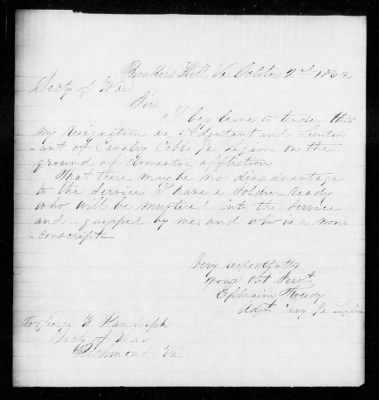 Bunkers Hill Va October 2nd 1862
Secty of War
Sir
I beg leave to tender this
my resignation as Adjutant and Lieuten
ant of Cavalry Cobbs Ga Legion on the
ground of Domestic affliction
That there may be no disadvantage
to the Service I have a Soldier ready
who will be mustered into the Service
and equipped by me and who is a none
conscript
Very respectfully
Your Obt Servt
Ephraim Tweedy
Adjt Cav Ga Legion
To George W Randolph
Secy of War
Richmond Va